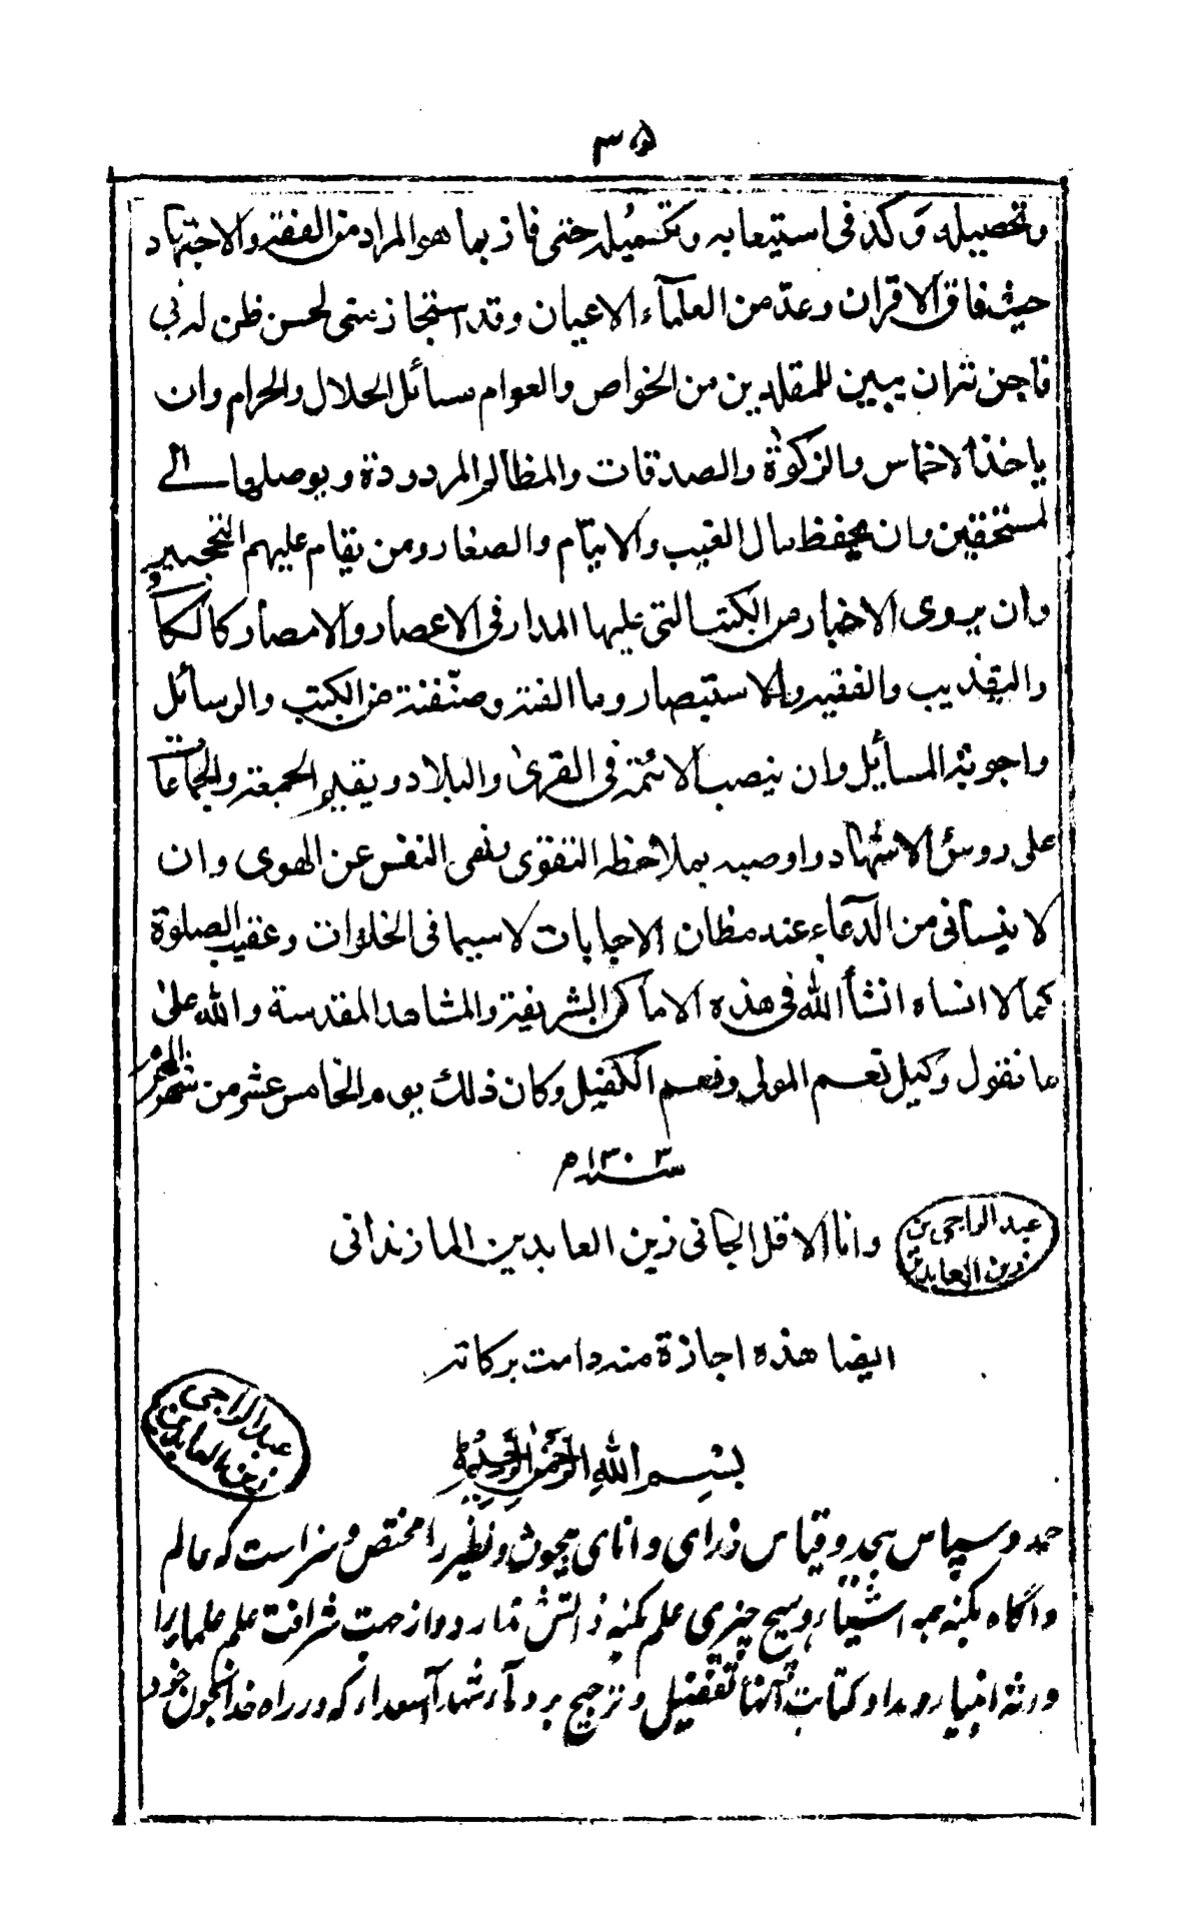 ٣٥
وتحصيله وكد فى استيعابه وتكميله حتى فاز بما هو المراد من الفقه والاجتهاد
حيث فاق الاقران وعد من العلمآء الاعيان وقد استجاز منى لحسن ظن له بي
فاجزته ان يبين للمقلدين من الخواص والعوام مسائل الحلال والحرام وان
ياخذ الاخماس والزكوة والصدقات والمظالم المردودة ويوصلها الى
المستحقين وان يحفظ مال الغيب والايتام والصغار ومن يقام عليهم
وان يروى الاخبار من الكتب التى عليها المدار فى الاعصار والامصار كالكافى
والتهذيب والفقيه والاستبصار وما الفته وصنّفته من الكتب والرسائل
واجوبة المسائل وان ينصب الائمة فى القرى والبلاد ويقيم الجمعة والجماعات
على روس الاشهاد واوصيه بملاحظة التقوى ونهى النفس عن الهوى وان
لا ينسانى من الدعاء عند مظان الاجابات لا سيما فى الخلوات وعقيب الصلوة
كما لا انساه انشأ الله فى هذه الاماكن الشريفة والمشاهد المقدسة والله على
ما نقول وكيل نعم المولى ونعم الكفيل وكان ذلك يوم الخامس عشر من شهر المحرم
سنه ١٣٠٣ه
وانا الاقل الجانى زين العابدين المازندرانى
عبده الراجى بن
زين العابدين
ايضا هذه اجازة منه دامت بركاته
عبده الراجى
زين العابدين
بسم الله الرحمن الرحيم
حمد وسپاس بيحد وقياس ذراى وداناى بيچون ونظير را مختص وسزاست كه عالم
وآگاه بكنه همه اشياء وهيچ چيزى علم بكنه ذاتش ندارد واز جهت شرافت علم علما را
ورثه انبياء ومداد كتابت آنها تفضيل وترجيح بر دماء شهداء آسوده كه در راه خدا بخون خود